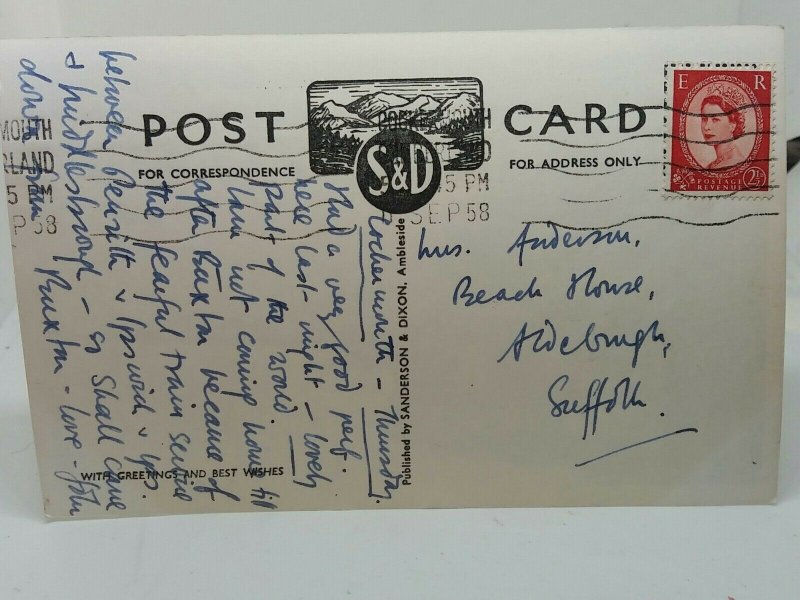 POST CARD
FOR CORRESPONDENCE
FOR ADDRESS ONLY
S&D
E R
POSTAGE
REVENUE
2½D
MOUTH
RLAND
5 PM
P 58
COCKERMOUTH
45 PM
SEP 58
Published by SANDERSON & DIXON, Ambleside
WITH GREETINGS AND BEST WISHES
Cockermouth - Thursday.
Had a very good perf.
here last night - lovely
part of the world.
I am not coming home till
after Buxton because of
the fearful train service
between Penrith & Ipswich & Yx.
& Middlesbrough - so shall come
down from Buxton - love - John
Mrs. Anderson,
Beach House,
Aldeburgh,
Suffolk.